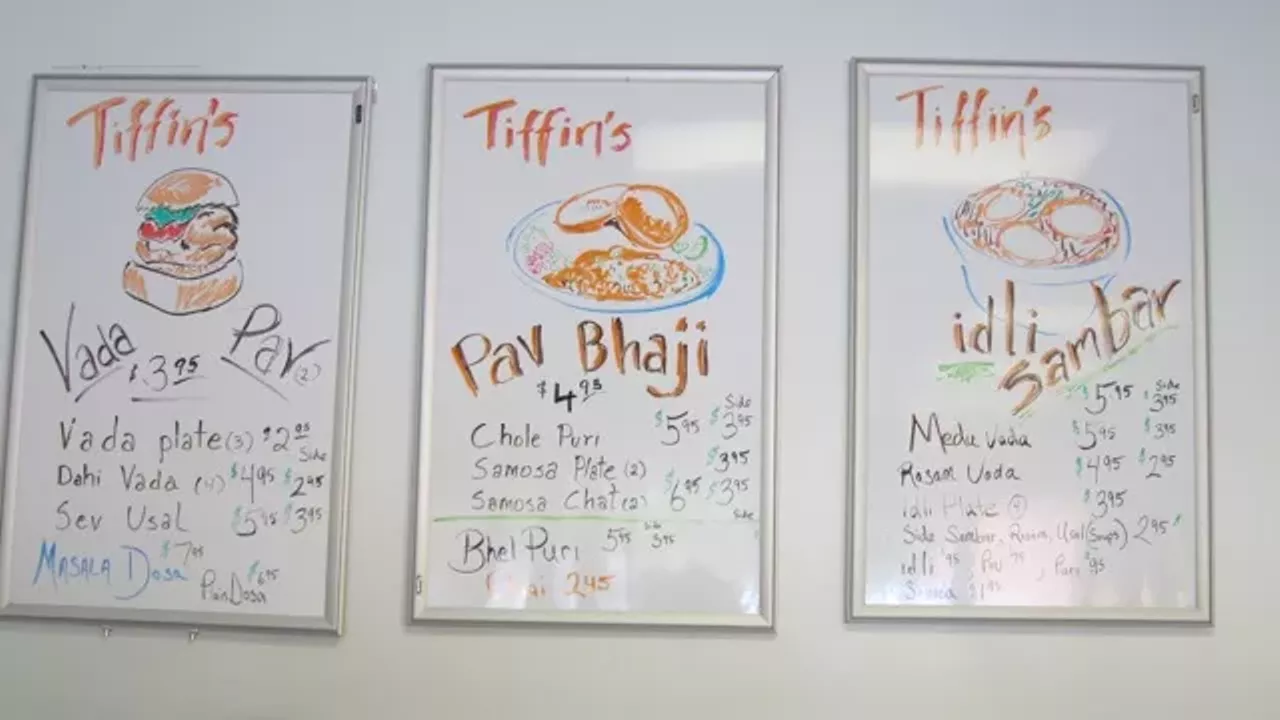 Tiffin's
Vada Pav (2)
$3.95
Vada plate (3) $2.95
Side
Dahi Vada (4) $4.95 $2.95
Sev Usal $5.95 $3.95
MASALA DOSA $7.95
Plain Dosa $6.95
Tiffin's
Pav Bhaji
$4.95
Side
Chole Puri $5.95 $3.95
Samosa Plate (2) $3.95
Samosa Chat (2) $6.95 $3.95
Side
Bhel Puri 5.95 3.95
2.45
Tiffin's
idli Sambar
Side
$5.95 $3.95
Medu Vada $5.95 $3.95
Rasam Vada $4.95 $2.95
idli Plate (4) $3.95
Side Sambar, Rasam, Usal (Soups) 2.95
idli .95, Pav, Puri .95